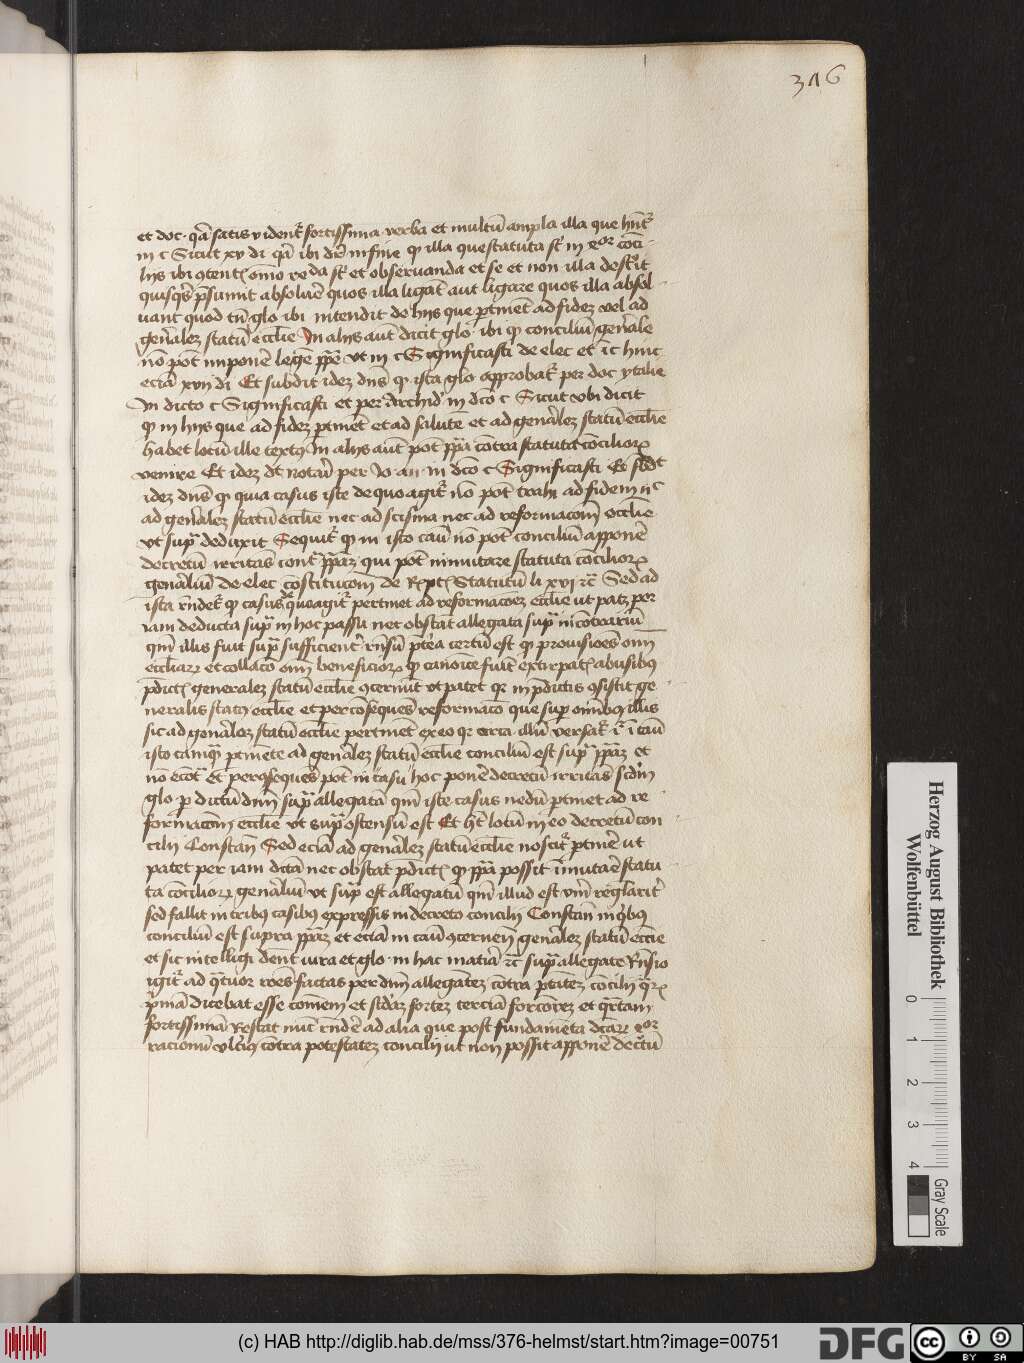 376
et doc. qa satis vident fortissima verba et multu ampla illa que hnt
in c Sicut xv di qa ibi dr in fine qp illa que statuta st in eor coci
lijs ibi gtent oio reda st et observanda et se et non illa destruit
quisqs psumit absolue quos illa ligat aut ligare quos illa absol
uant quod tn glo ibi intendit de hijs que ptinet ad fidez vel ad
generalez statu ecclie In alijs aut dicit glo ibi qp conciliu generale
no pot imponere lege ppe vt in c Significasti de elec et ic hinc
ecia xvij di Et subdit idez dns qp ista glo approbat per doc ytalie
In dicto c Significasti et per Archid in dco c Sicut vbi dicit
qp in hijs que ad fidez ptinet et ad salute et ad generalez statu ecclie
habet locu ille textus In alijs aut pot ppa contra statuta concilior
venire Et idez dt notari per Jo an in dco c Significasti Et
idez dns qp quia casus iste de quo agit no pot trahi ad fidem nec
ad generalez statu ecclie nec ad scisma nec ad reformacoem ecclie
vt supra deduxit Sequit qp in isto casu no pot conciliu apponere
decretu irritans contra papaz qui pot inmutare statuta concilior
generaliu de elec constitucoem de Rept Statutu li xvi rc Sed ad
ista rndet qp casus de quo agit pertinet ad reformacoez ecclie ut patz per
iam deducta supra in hoc passu nec obstat allegata supra in contrariu
qm illis fuit supra sufficienter rnsu ptea certu est qp provisiones oim
ecclesiar et collaco oim beneficior qp canonice fuit extirpat abusibus
pdict generalez statu ecclie gcernut vt patet qr in pdictis gsistit ge
neralis status ecclie et per consequens reformaco que sup oimbus illis
sic ad generalez statu ecclie pertinet ex eo qr circa illum versat in casu
isto tamqua ptinete ad generalez statu ecclie conciliu est supra papaz et
no econtra Et per gsequens pot in casu hoc ponere decretu irritans scdm
glo p dictu dnm supra allegata qm iste casus nedu ptinet ad re
formacoem ecclie vt supra ostensu est Et het locu in eo decretu con
cilij Constan Sed ecia ad generalez statu ecclie noscit ptinere ut
patet per iam dicta nec obstat pdict qp ppa possit inmutare statu
ta concilior generaliu vt supra est allegatu qm illud est verum regularit
sed fallit in tribus casibus expressis in decreto concilij Constan in quibus
conciliu est supra papaz et ecia in casu gcernen generalez statu eccie
et sic intelligi dent iura et glo in hac matia rc supra allegate Rnsio
igit ad quatuor roes factas per dnm allegatez contra ptatez concilij qr
prima dicebat esse comem et scdaz fortez tercia forcorez et quartam
fortissima Restat nuc rndere ad alia que post fundamenta dcar eor
racionu vlterius contra potestatez concilij ut non possit apponere decretu
Herzog August Bibliothek
Wolfenbüttel
0 1 2 3 4
Gray Scale
(c) HAB http://diglib.hab.de/mss/376-helmst/start.htm?image=00751
DFG
cc BY SA